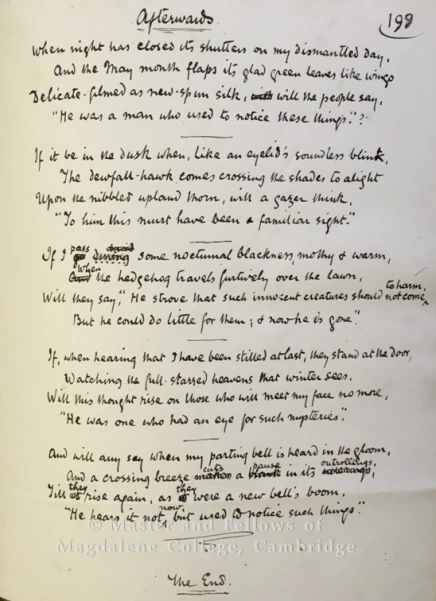 Afterwards.
199
When night has closed its shutters on my dismantled day,
And the May month flaps its glad green leaves like wings
Delicate-filmed as new-spun silk, will the people say,
"He was a man who used to notice these things."?
If it be in the dusk when, like an eyelid's soundless blink,
The dewfall-hawk comes crossing the shades to alight
Upon the nibbled upland thorn, will a gazer think,
"To him this must have been a familiar sight."
If I pass during some nocturnal blackness, mothy & warm,
When the hedgehog travels furtively over the lawn,
Will they say, "He strove that such innocent creatures should not come to harm,
But he could do little for them; & now he is gone".
If, when hearing that I have been stilled at last, they stand at the door,
Watching the full-starred heavens that winter sees,
Will this thought rise on those who will meet my face no more,
"He was one who had an eye for such mysteries".
And will any say when my parting bell is heard in the gloom,
And a crossing breeze cuts a pause in its outrollings,
Till they rise again, as they were a new bell's boom,
"He hears it not now, but used to notice such things".
© Master and Fellows of
Magdalene College, Cambridge
The End.